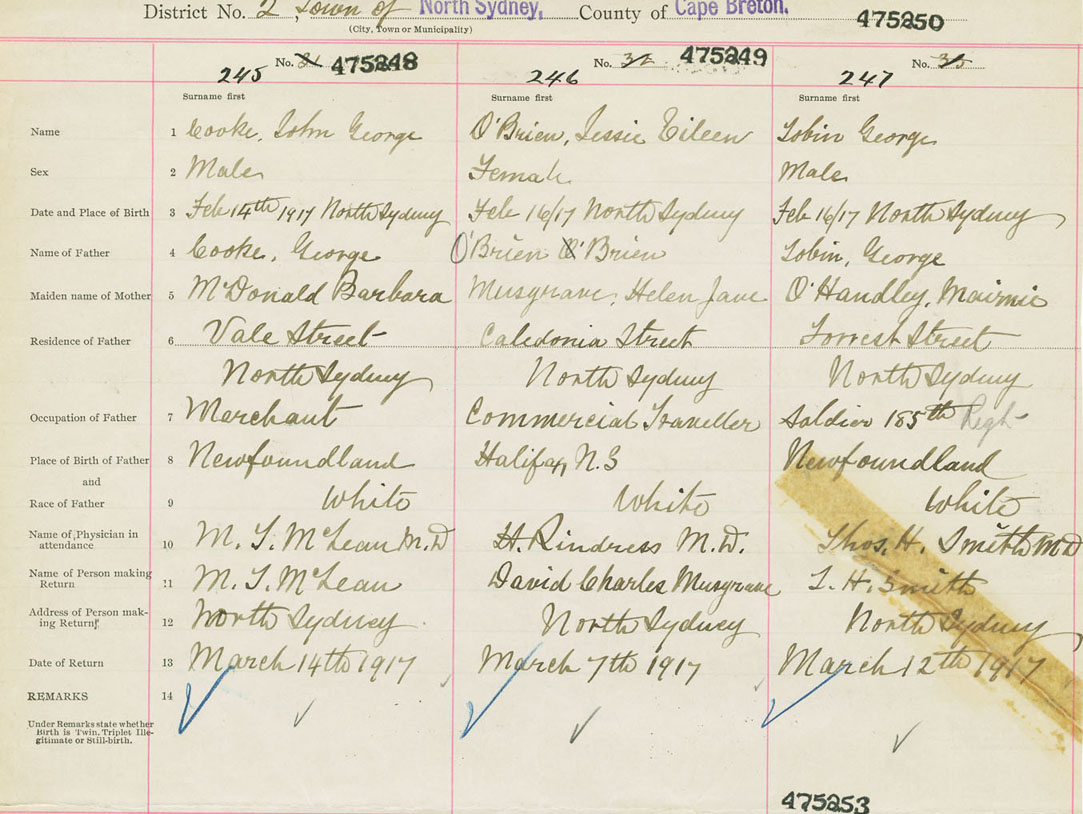 District No. 2, Town of North Sydney, County of Cape Breton. 475250
(City, Town or Municipality)
No. 31 475248 No. 32 475249 No. 33
245 246 247
Surname first Surname first Surname first
Name 1 Cooke, John George O'Brien, Jessie Eileen Tobin George
Sex 2 Male Female Male
Date and Place of Birth 3 Feb 14th 1917 North Sydney Feb 16/17 North Sydney Feb 16/17 North Sydney
Name of Father 4 Cooke, George O'Brien O'Brien Tobin, George
Maiden name of Mother 5 McDonald Barbara Musgrave, Helen Jane O'Handley, Mairnie
Residence of Father 6 Vale Street Caledonia Street Forrest Street
North Sydney North Sydney North Sydney
Occupation of Father 7 Merchant Commercial Traveller Soldier 185th Regt
Place of Birth of Father 8 Newfoundland Halifax, N.S Newfoundland
and
Race of Father 9 White White White
Name of Physician in
attendance 10 M. T. McLean M.D H. Rindress M.D. Thos. H. Smith M D
Name of Person making
Return 11 M. T. McLean David Charles Musgrave T. H. Smith
Address of Person mak-
ing Return 12 North Sydney North Sydney North Sydney
Date of Return 13 March 14th 1917 March 7th 1917 March 12th 1917
REMARKS 14
Under Remarks state whether
Birth is Twin, Triplet Ille-
gitimate or Still-birth.
475253